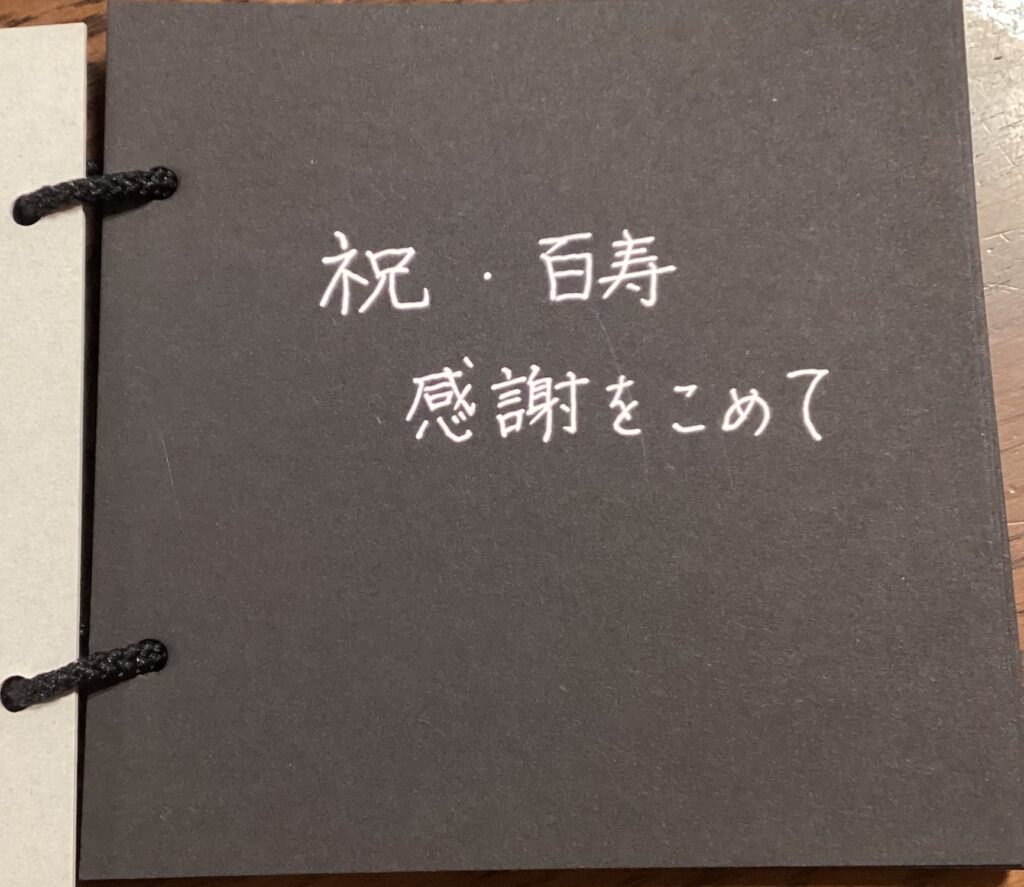 祝・百寿
感謝をこめて